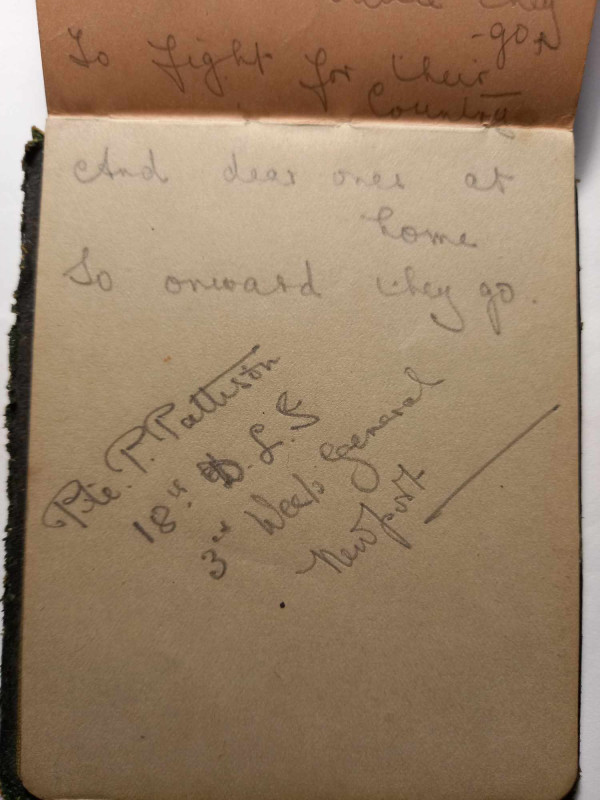 they
-go,
To fight for their
Country
And dear ones at
home
So onward they go.
Pte. P. Pattison
18th D. L. I
3rd West General
Newport